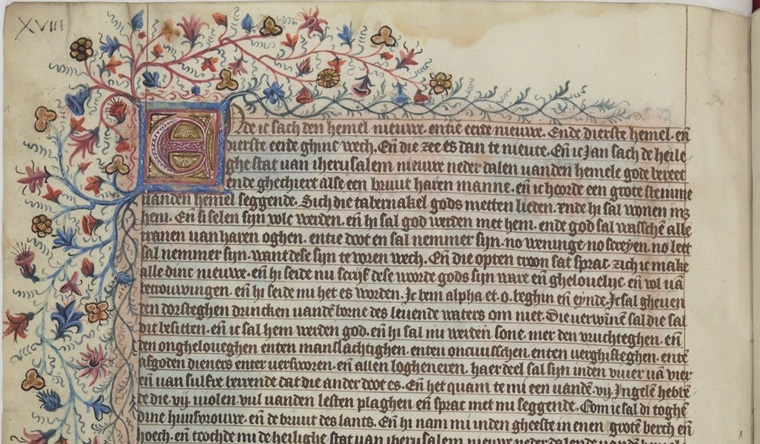 XVIII
Ende ic sach den hemel nieuwe. entie eerde nieuwe. Ende dierste hemel. en̄
dierste eerde ghinc wech. En̄ die zee es dan te nieute. En̄ ic Jan sach de heile
ghe stat uan iherusalem nieuwe neder dalen uanden hemele gode bereet
ende ghechiert alse een bruut haren manne. en̄ ic hoorde een grote stemme
uanden hemel seggende. Sich die tabernakel gods metten lieden. ende hi sal wonen mz
hem. En̄ si selen sijn volc werden. en̄ hi sal god werden met hem. ende god sal wasschē alle
tranen uan haren oghen. entie doot en sal nemmer sijn. no weninge no screyen. no lett
sal nemmer sijn. want dese sijn te voren wech. En̄ die opten troon sat sprac. zich ic make
alle dinc nieuwe. en̄ hi seide mi scrijf dese worde gods sijn ware en̄ ghelouelijc. en̄ vol uā
betrouwingen. en̄ hi seide mi het es worden. Ic bem alpha et. o. beghin en̄ eynde. Ic sal gheuen
den dorsteghen drincken uandē borne des leuende waters om niet. Die verwinnē sal die sal
dit besitten. en̄ ic sal hem werden god. en̄ hi sal mi werden sone. mer den vruchteghen. en̄
den ongheloueghen enten manslachtighen. enten oncuusschen. enten uerghifteghen. entē
afgoden dieners enter veruloren. en̄ allen logheneren. haer deel sal sijn inden viuer uā vier
en̄ uan sulfre berrende dat die ander doot es. En̄ het quam te mi een uandē. vij. Ingelē hebbē
de die. vij. uiolen. vul uanden lesten plaghen. en̄ sprac met mi seggende. Com ic sal di toghē
dine huusvrouwe. en̄ de bruut des lants. En̄ hi nam mi inden gheeste in enen grotē berch en̄
hoech. en̄ toochde mi de heilighe stat uan iherusalem nieuwe neder